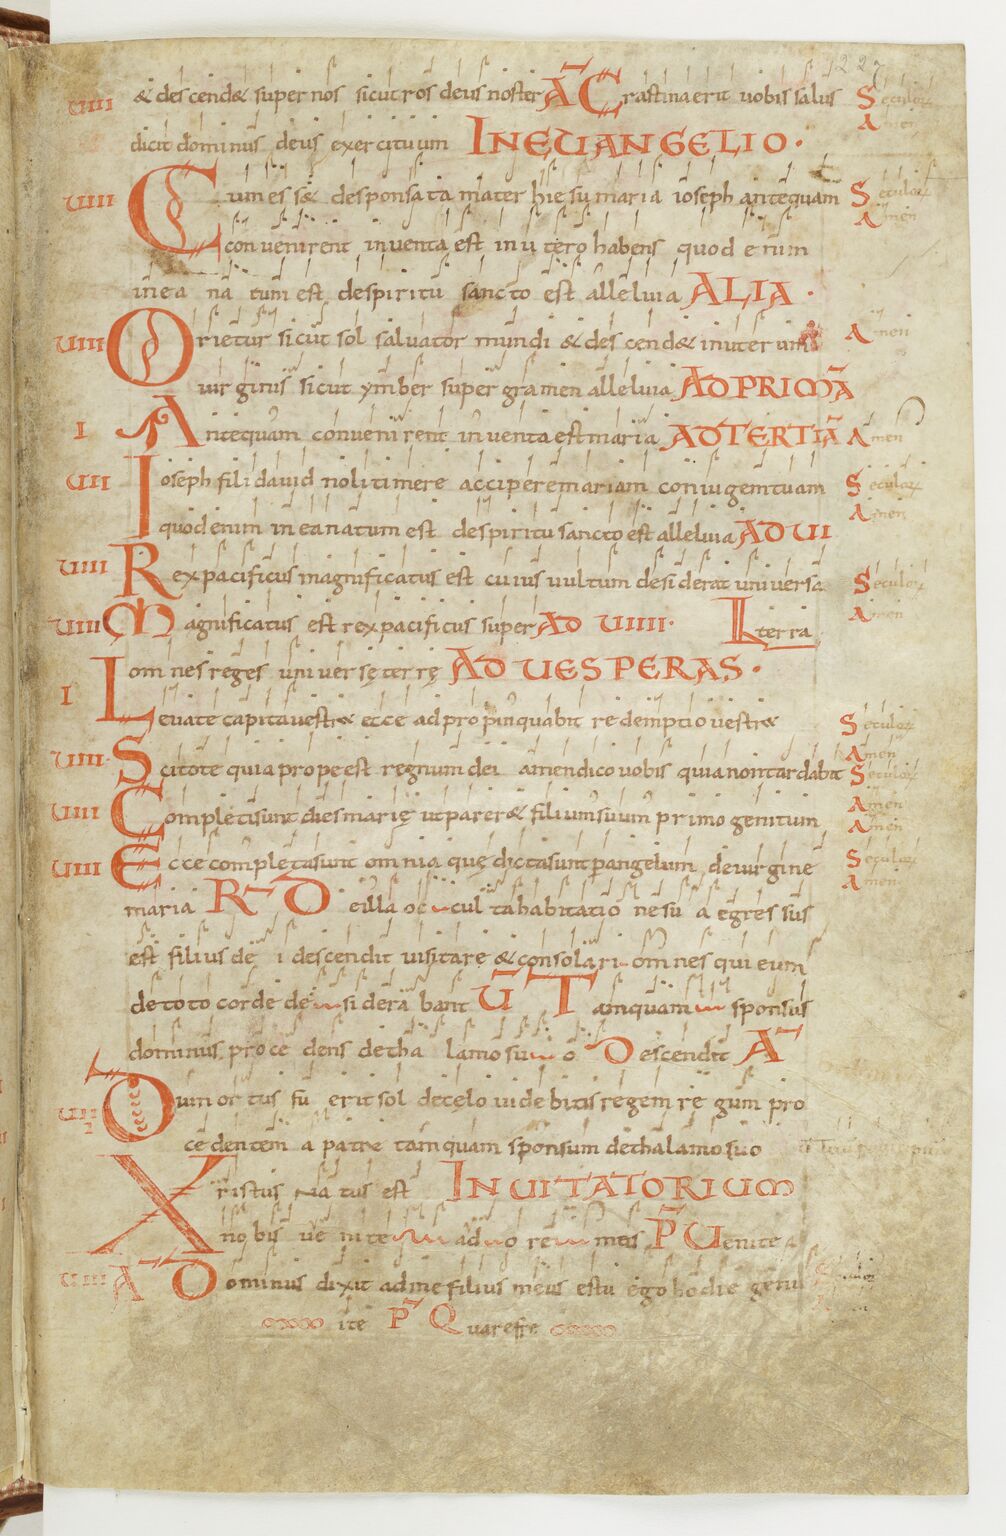 uiii & descend& super nos sicut ros deus noster A Crastina erit uobis salus Seculorum
dicit dominus deus exercituum IN EUANGELIO · Amen
uiii Cum ess& desponsata mater hiesu maria ioseph antequam Seculorum
conuenirent inuenta est in utero habens quod enim Amen
in ea natum est despiritu sancto est alleluia ALIA ·
uiii Orietur sicut sol saluator mundi & descend& in uterum Amen
uirginis sicut ymber super gramen alleluia AD PRIMA
I Antequam conuenirent inuenta est maria AD TERTIA Amen
uii Ioseph fili dauid noli timere accipere mariam coniugem tuam Seculorum
quod enim in ea natum est despiritu sancto est alleluia AD UI Amen
uiii Rex pacificus magnificatus est cuius uultum desiderat uniuersa Seculorum
uiii Magnificatus est rex pacificus super AD UIIII · terra Amen
omnes reges uniuersę terrę AD UESPERAS ·
I Leuate capita uestra ecce adpropinquabit redemptio uestra Seculorum
Amen
uiii Scitote quia prope est regnum dei amen dico uobis quia non tardabit Seculorum
uiii Completi sunt dies marię ut parer& filium suum primogenitum Amen
Amen
uiii Ecce completa sunt omnia quę dicta sunt per angelum de uirgine Seculorum
maria R De illa occulta habitatione sua egressus Amen
est filius dei descendit uisitare & consolari omnes qui eum
de toto corde desiderabant U Tamquam sponsus
dominus procedens de thalamo suo Descendit A
Dum ortus fuerit sol de cęlo uidebitis regem regum pro
cedentem a patre tamquam sponsum de thalamo suo
Xristus natus est INUITATORIUM
nobis uenite adoremus P Uenite
uiii A Dominus dixit ad me filius meus es tu ego hodie genu
ite P Quare fre